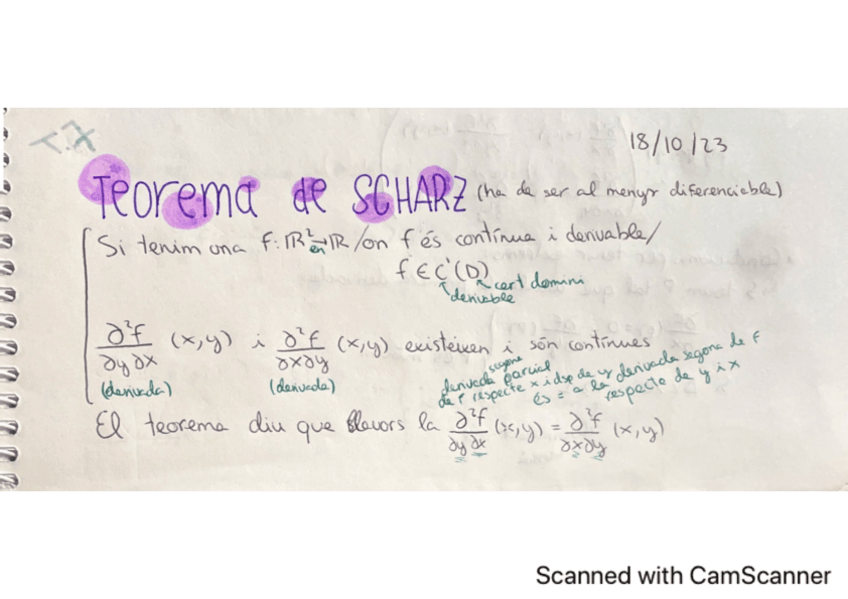 T.7
18/10/23
Teorema de SCHARZ (ha de ser al menys diferenciable)
Si tenim una f: ℝ² → ℝ / on f és contínua i derivable /
en
f ∈ C¹(D)
derivable
cert domini
∂²f/∂y∂x (x,y) i ∂²f/∂x∂y (x,y) existeixen i són contínues
(derivada) (derivada)
segona
derivada parcial
de f respecte x i dsp de y
és = a la derivada segona de f
respecte de y i x
El teorema diu que llavors la ∂²f/∂y∂x (x,y) = ∂²f/∂x∂y (x,y)
Scanned with CamScanner